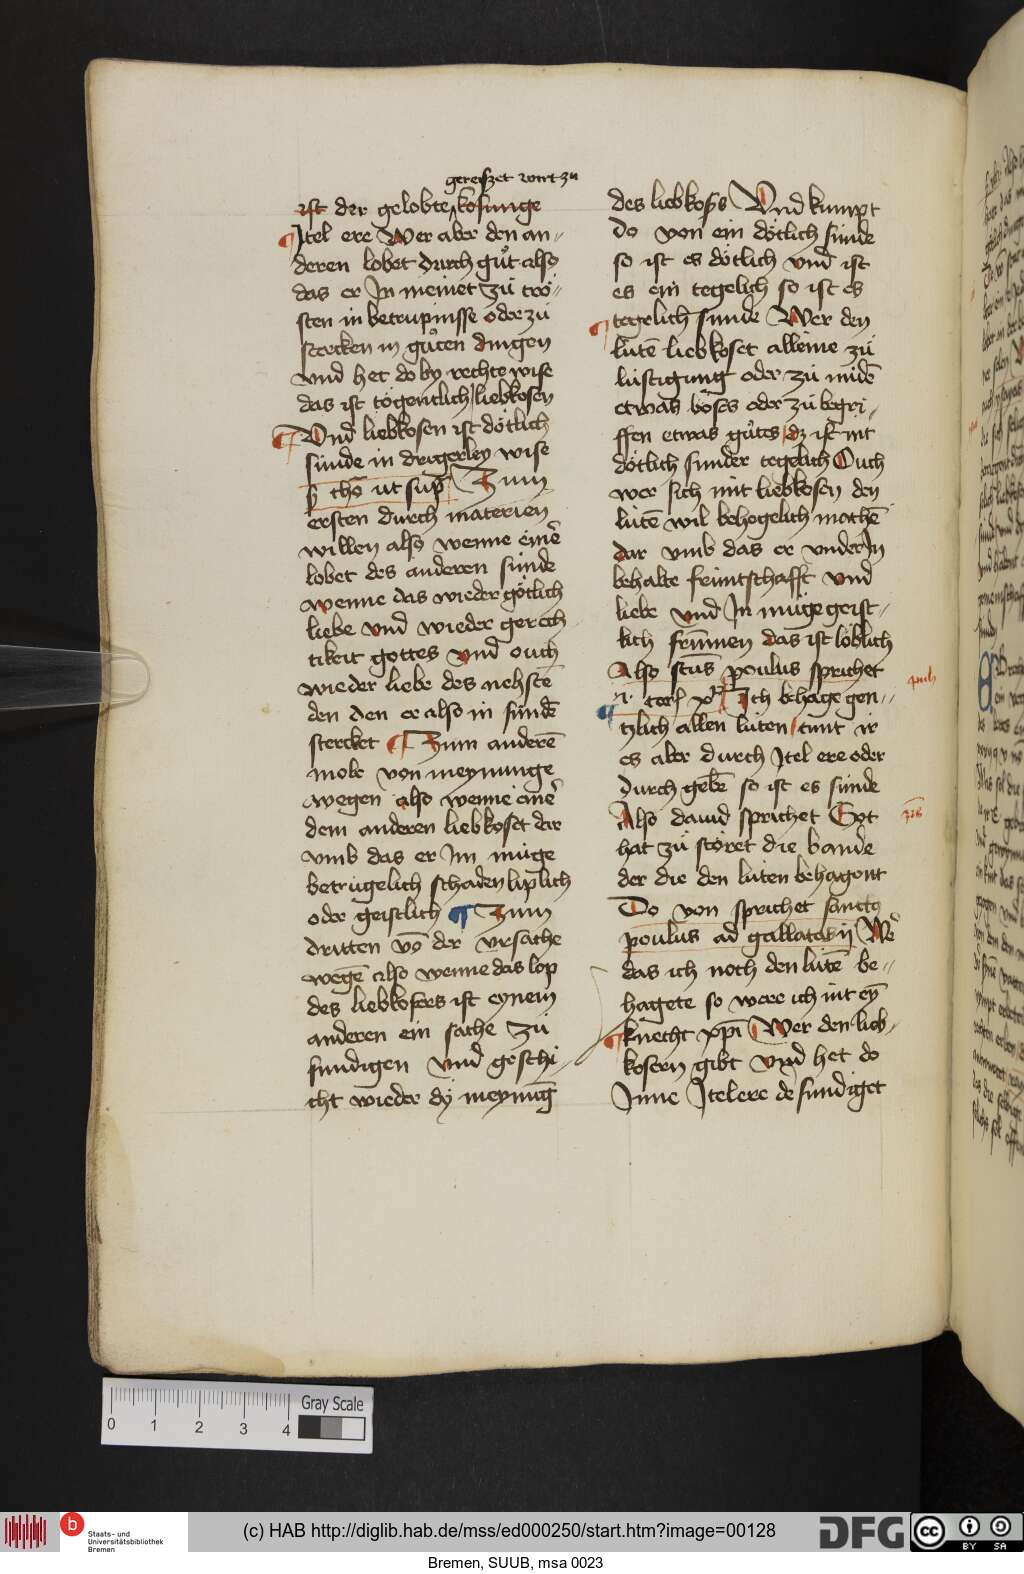 gereiszet wirt zu
ist der gelobte kosunge
Itel ere Wer aber den an-
deren lobet durch gůt also
das er In meinet zů trö-
sten in betrupnisse oder zů
stercken in gůten dingen
vnd het do by rechte wise
das ist tögentlich liebkosen
Vnd liebkosen ist dötlich
sůnde in drigerley wise
ſ tho ut sup̄ Zum
ersten durch materien
willen also wenne eine͛
lobet des anderen sůnde
wenne das wieder götlich
liebe vnd wieder gerech
tikeit gottes vnd ouch
wieder liebe des nehstē
den den er also in sůndē
stercket Zum anderē
mole von meynunge
wegen also wenne eine͛
dem anderen liebkoset dar
vmb das er Im můge
betrugelich schaden liplich
oder geistlich Zum
dritten vō der vrsache
wegē also wenne das lop
des liebkosers ist eynem
anderen ein sache zů
sundigen vnd geschi-
cht wieder dy meynūg
des liebkoss Vnd kumpt
do von ein dötlich sůnde
so ist es dötlich vnd ist
es ein tegelich so ist es
tegelich sunde Wer den
lůtē liebkoset alleine zů
lůstigung oder zů midē
etwas böses oder zů begri-
ffen etwas gůtes dz ist nit
dötlich sunder tegelich Ouch
wer sich mit liebkosen den
lůtē wil behegelich machē
dar vmb das er vnder In
behalte frůntschafft vnd
liebe vnd In můge geist-
lich frůmen das ist löblich
Also sctūs poulus sprichet
Ich behage gen-
tzlich allen lůten tůnt ir
es aber durch Itel ere oder
durch gebē so ist es sůnde
Also dauid sprichet Got
hat zů störet die bande
der die den lůten behagent
Do von sprichet sanctꝰ
poulus ad gallatas ij We͛
das ich noch den lůtē be-
hagete so were ich nit eȳ
knecht xp̄i Wer den lieb-
kosern gibt vnd het do
Inne Itelere de sundiget
0 1 2 3 4
Gray Scale
B
Staats- und
Universitätsbibliothek
Bremen
(c) HAB http://diglib.hab.de/mss/ed000250/start.htm?image=00128
DFG
cc
BY SA
Bremen, SUUB, msa 0023